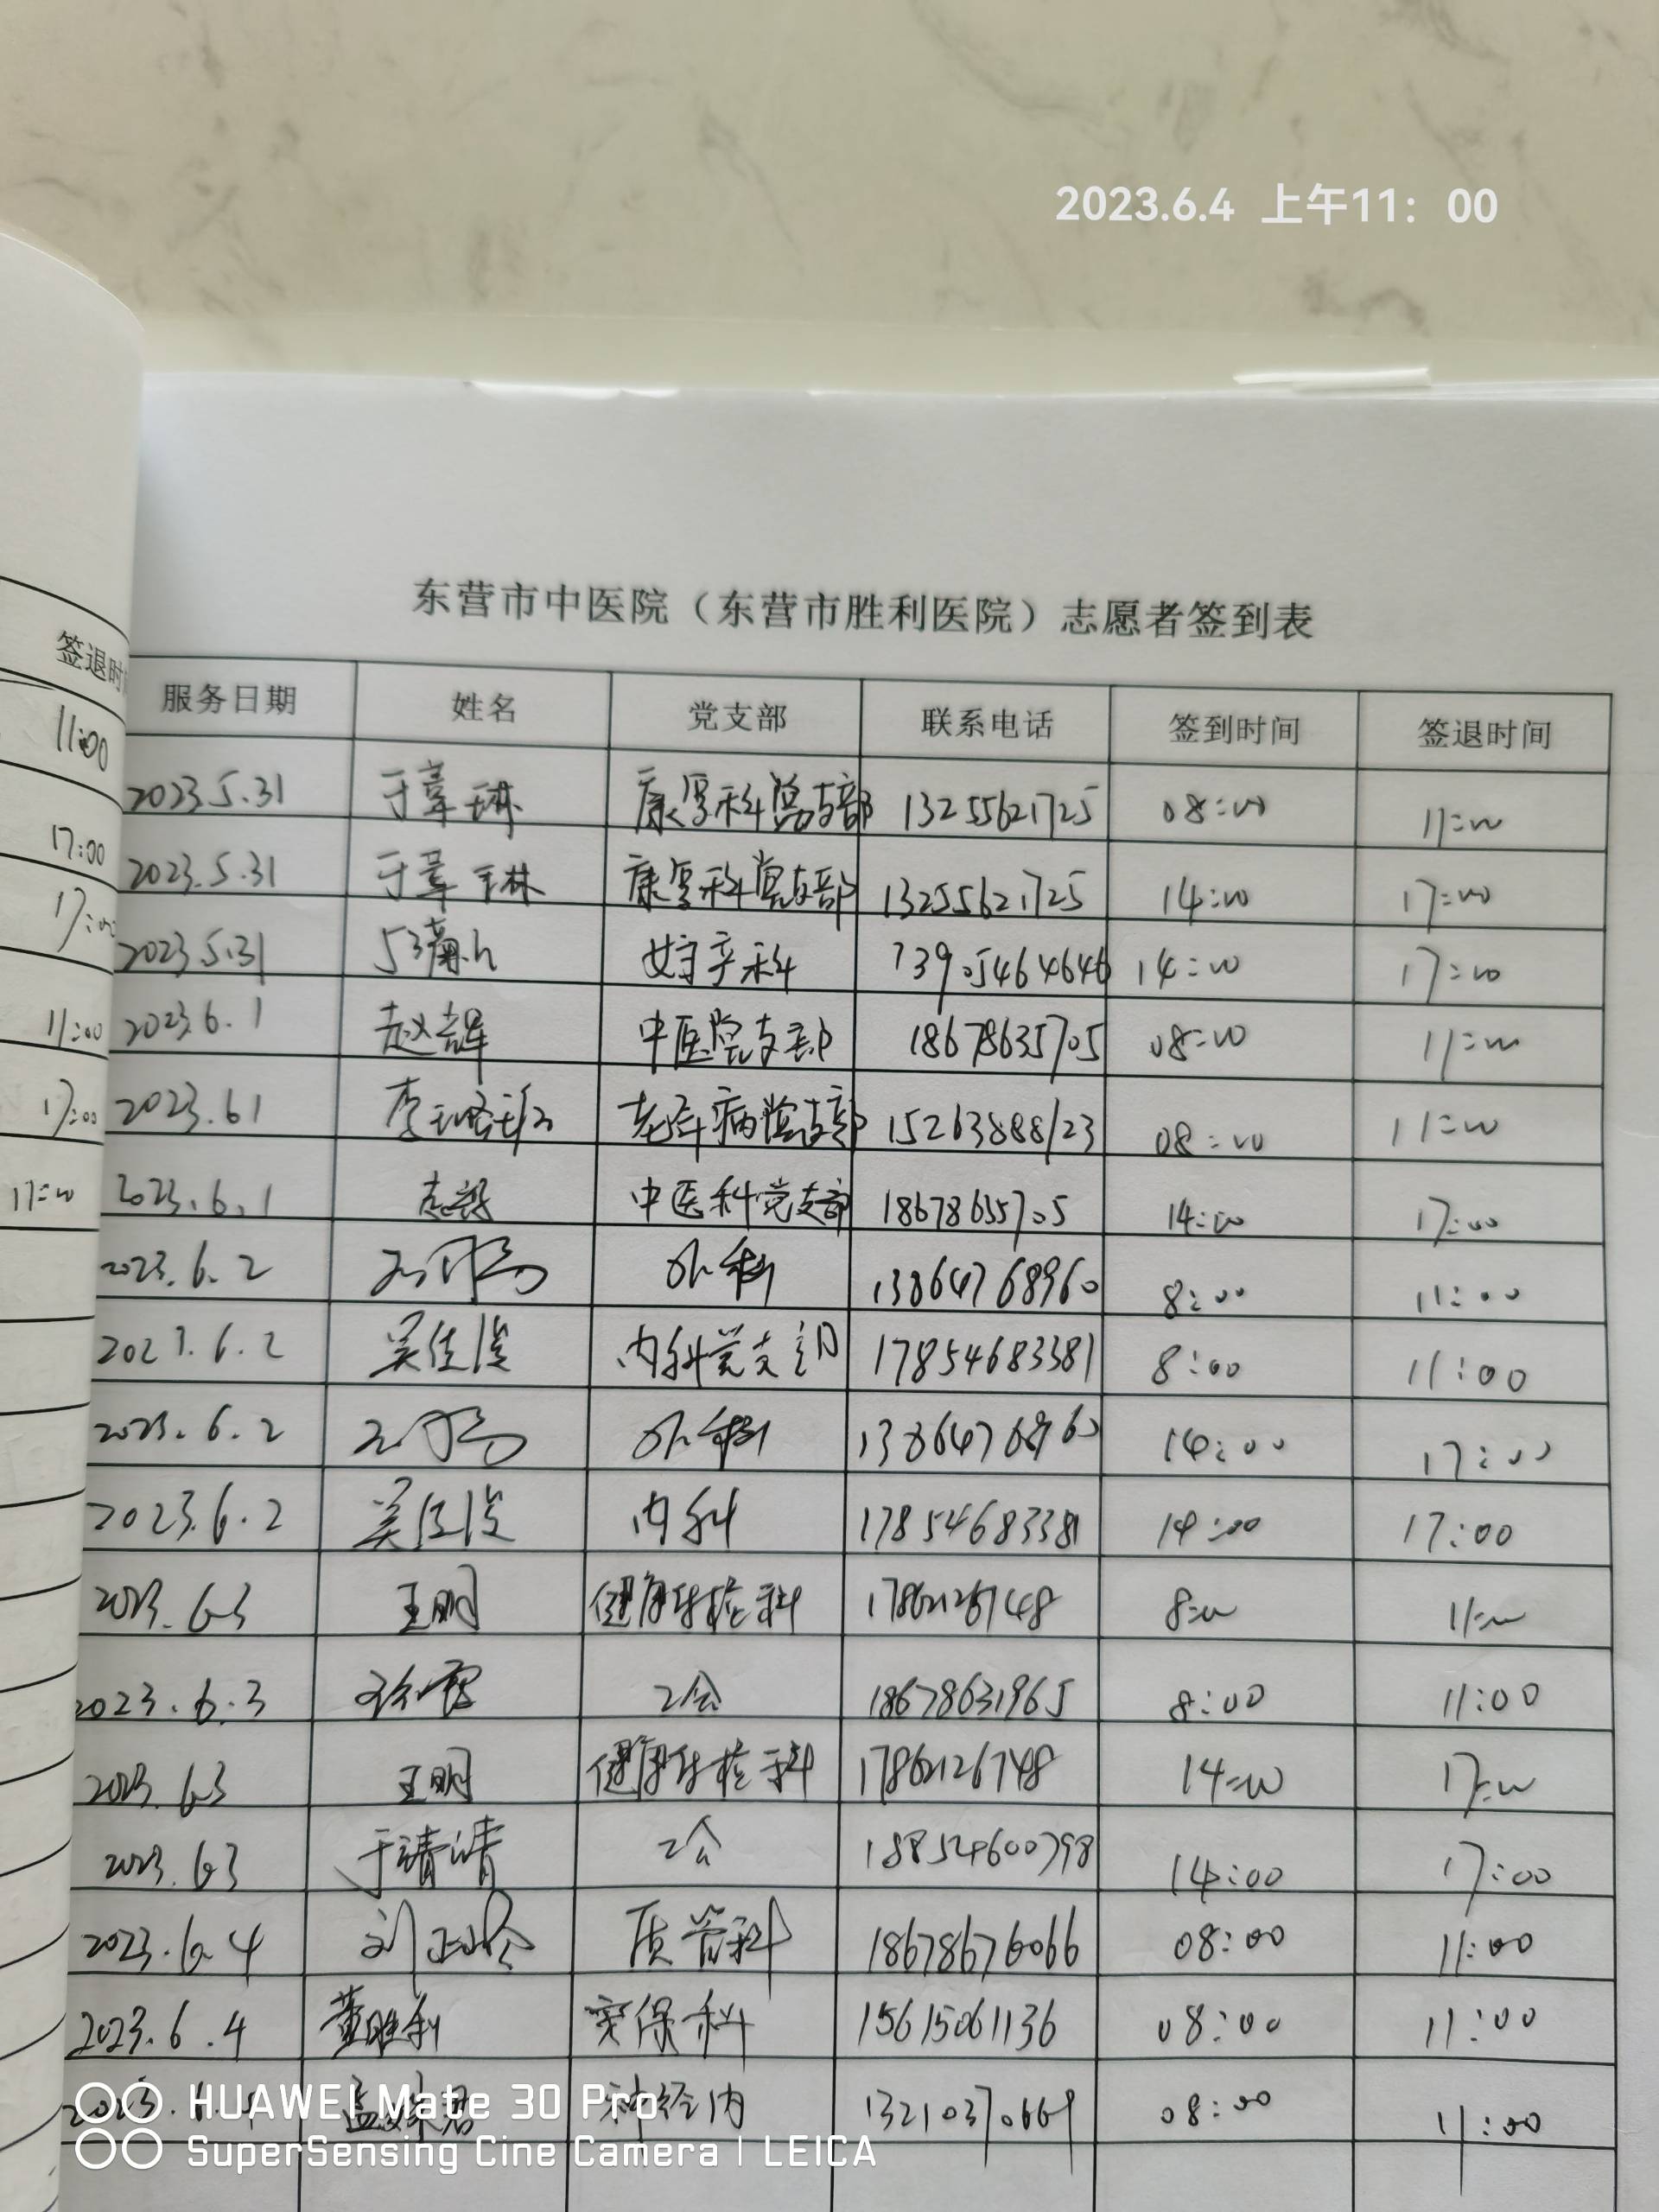 2023.6.4 上午11：00
东营市中医院（东营市胜利医院）志愿者签到表
签退时
11:00
17:00
17:00
11:00
17:00
17:00
服务日期 姓名 党支部 联系电话 签到时间 签退时间
2023.5.31 于章琳 康复科党支部 13255621725 08:00 11:00
2023.5.31 于章琳 康复科党支部 13255621725 14:00 17:00
2023.5.31 妇产科 13905464646 14:00 17:00
2023.6.1 赵辉 中医院支部 18678635705 08:00 11:00
2023.6.1 李 老年病党支部 15263888123 08:00 11:00
2023.6.1 中医科党支部 18678635705 14:00 17:00
2023.6.2 外科 13864768960 8:00 11:00
2023.6.2 吴佳俊 内科党支部 17854683381 8:00 11:00
2023.6.2 外科 13864768960 14:00 17:00
2023.6.2 吴佳俊 内科 17854683381 14:00 17:00
2023.6.3 王明 健康体检科 8:00 11:00
2023.6.3 工会 18678631965 8:00 11:00
2023.6.3 王明 健康体检科 17862126748 14:00 17:00
2023.6.3 于清清 工会 18854600798 14:00 17:00
2023.6.4 刘 质管科 18678676066 08:00 11:00
2023.6.4 董胜利 安保科 15615061136 08:00 11:00
2023.6.4 孟 神经内 13210370669 08:00 11:00
HUAWEI Mate 30 Pro
SuperSensing Cine Camera | LEICA